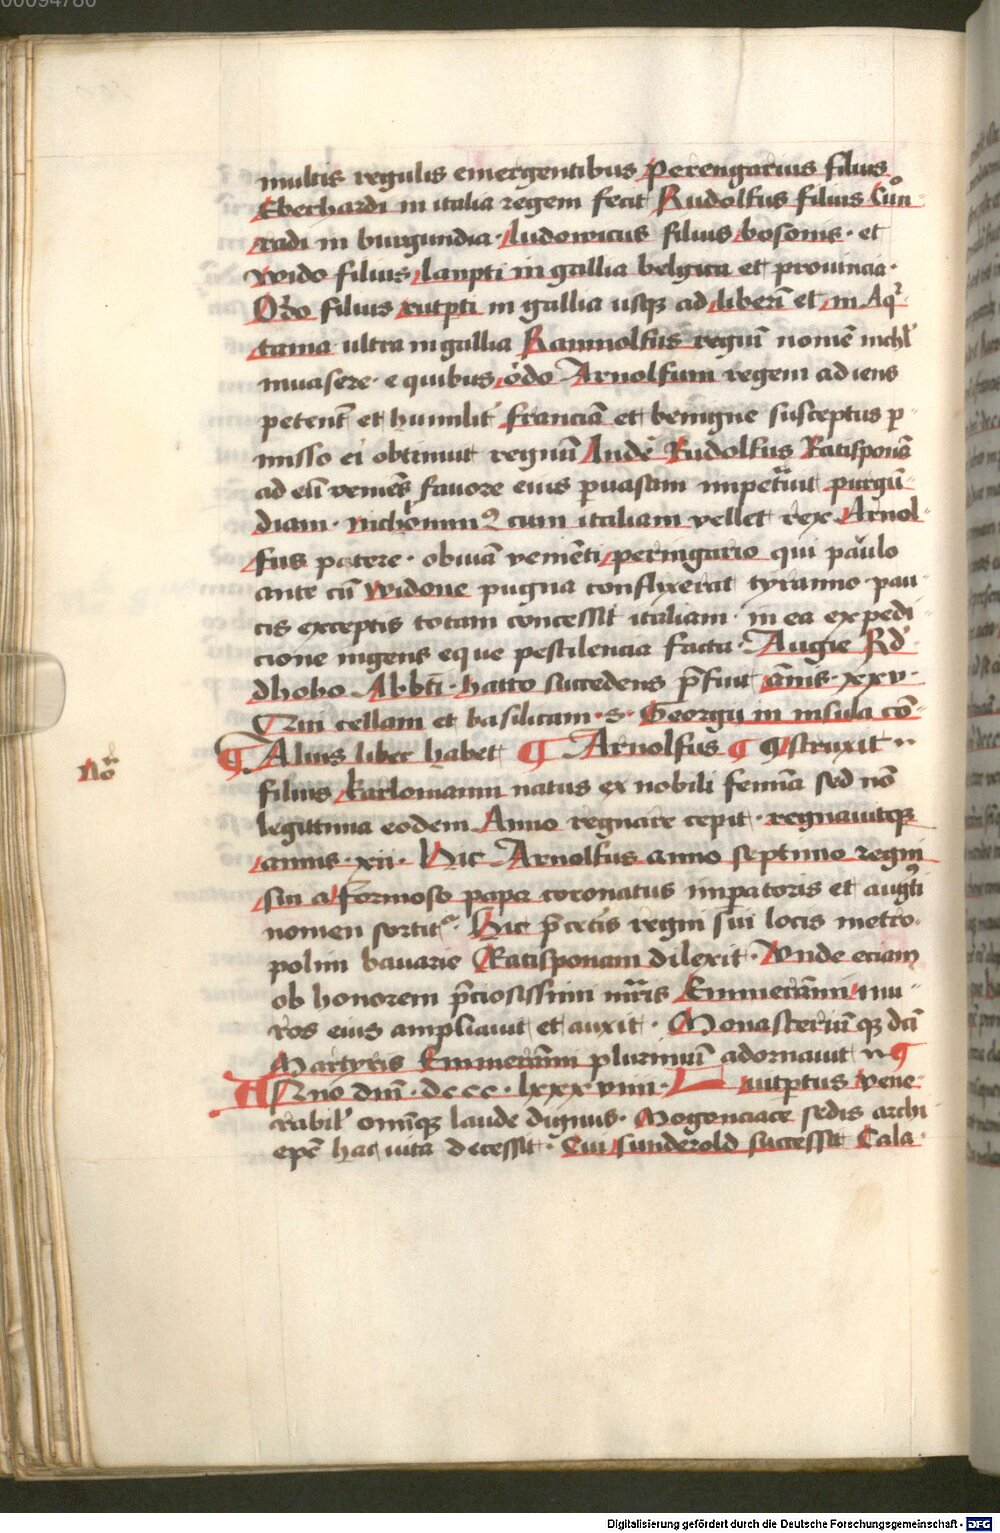 00094780
multis regulis emergentibus Perengarius filius
Eberhardi in italia regem fecit Rudolfus filius Cůn
radi in burgundia · ludowicus filius bosonis · et
wido filius lanpti in gallia belgica et prouincia ·
Odo filius rutpti in gallia usqꝫ ad liberī et in Aqⁱ
tania ultra in gallia Ramnolfus regnū nomē nichl̕
inuasere · e quibus odo Arnolfum regem adiens
petent̄ et humilit̕ franciā et benigne susceptus p
misso ei obtinuit regnū Inde Rudolfus Ratisponā
ad eū veniēs fauore eius puasam impetᵃuit purgū
diam · nichōmin9 cum italiam vellet rex Arnol
fus petere · obuiā veniēti peringario qui paulo
ante cū widone pugna conflixerat tyranno pau
cis exceptis totam concessit italiam · in ea expedi
cione ingens eque pestilencia facta · Augie Rd̕
dhoho Abbti · hatto succedens p̄fuit ānis · xxv ·
Qui cellam et basilicam · S · Georgii in insula cō
¶ Alius liber habet ¶ Arnolfus ¶ 9struxit
No
filius karlomanni natus ex nobili femīa sed nō
legittima eodem Anno regnare cepit · regnauitqꝫ
annis · xii · Hic Arnolfus anno septimo regni
sui a formoso papa coronatus impatoris et aug9ti
nomen sortitᵉ · Hic p̄ cetis regni sui locis metro
polim bauarie Ratisponam dilexit · Vnde eciam
ob honorem p̄ciosissimi mr̄is Emmerāmi mu
ros eius ampliauit et auxit · Monasteriūqꝫ dc̄i
Martyris Emmerāmi plurimū adornauit
ANno dnī · dccc · lxxx viiii · Lutptus vene
rabil̕ omīqꝫ laude dignus · Mogonciace sedis archi
epc̄ hac uita decessit · Cui sunderold successit Cala
Digitalisierung gefördert durch die Deutsche Forschungsgemeinschaft - DFG